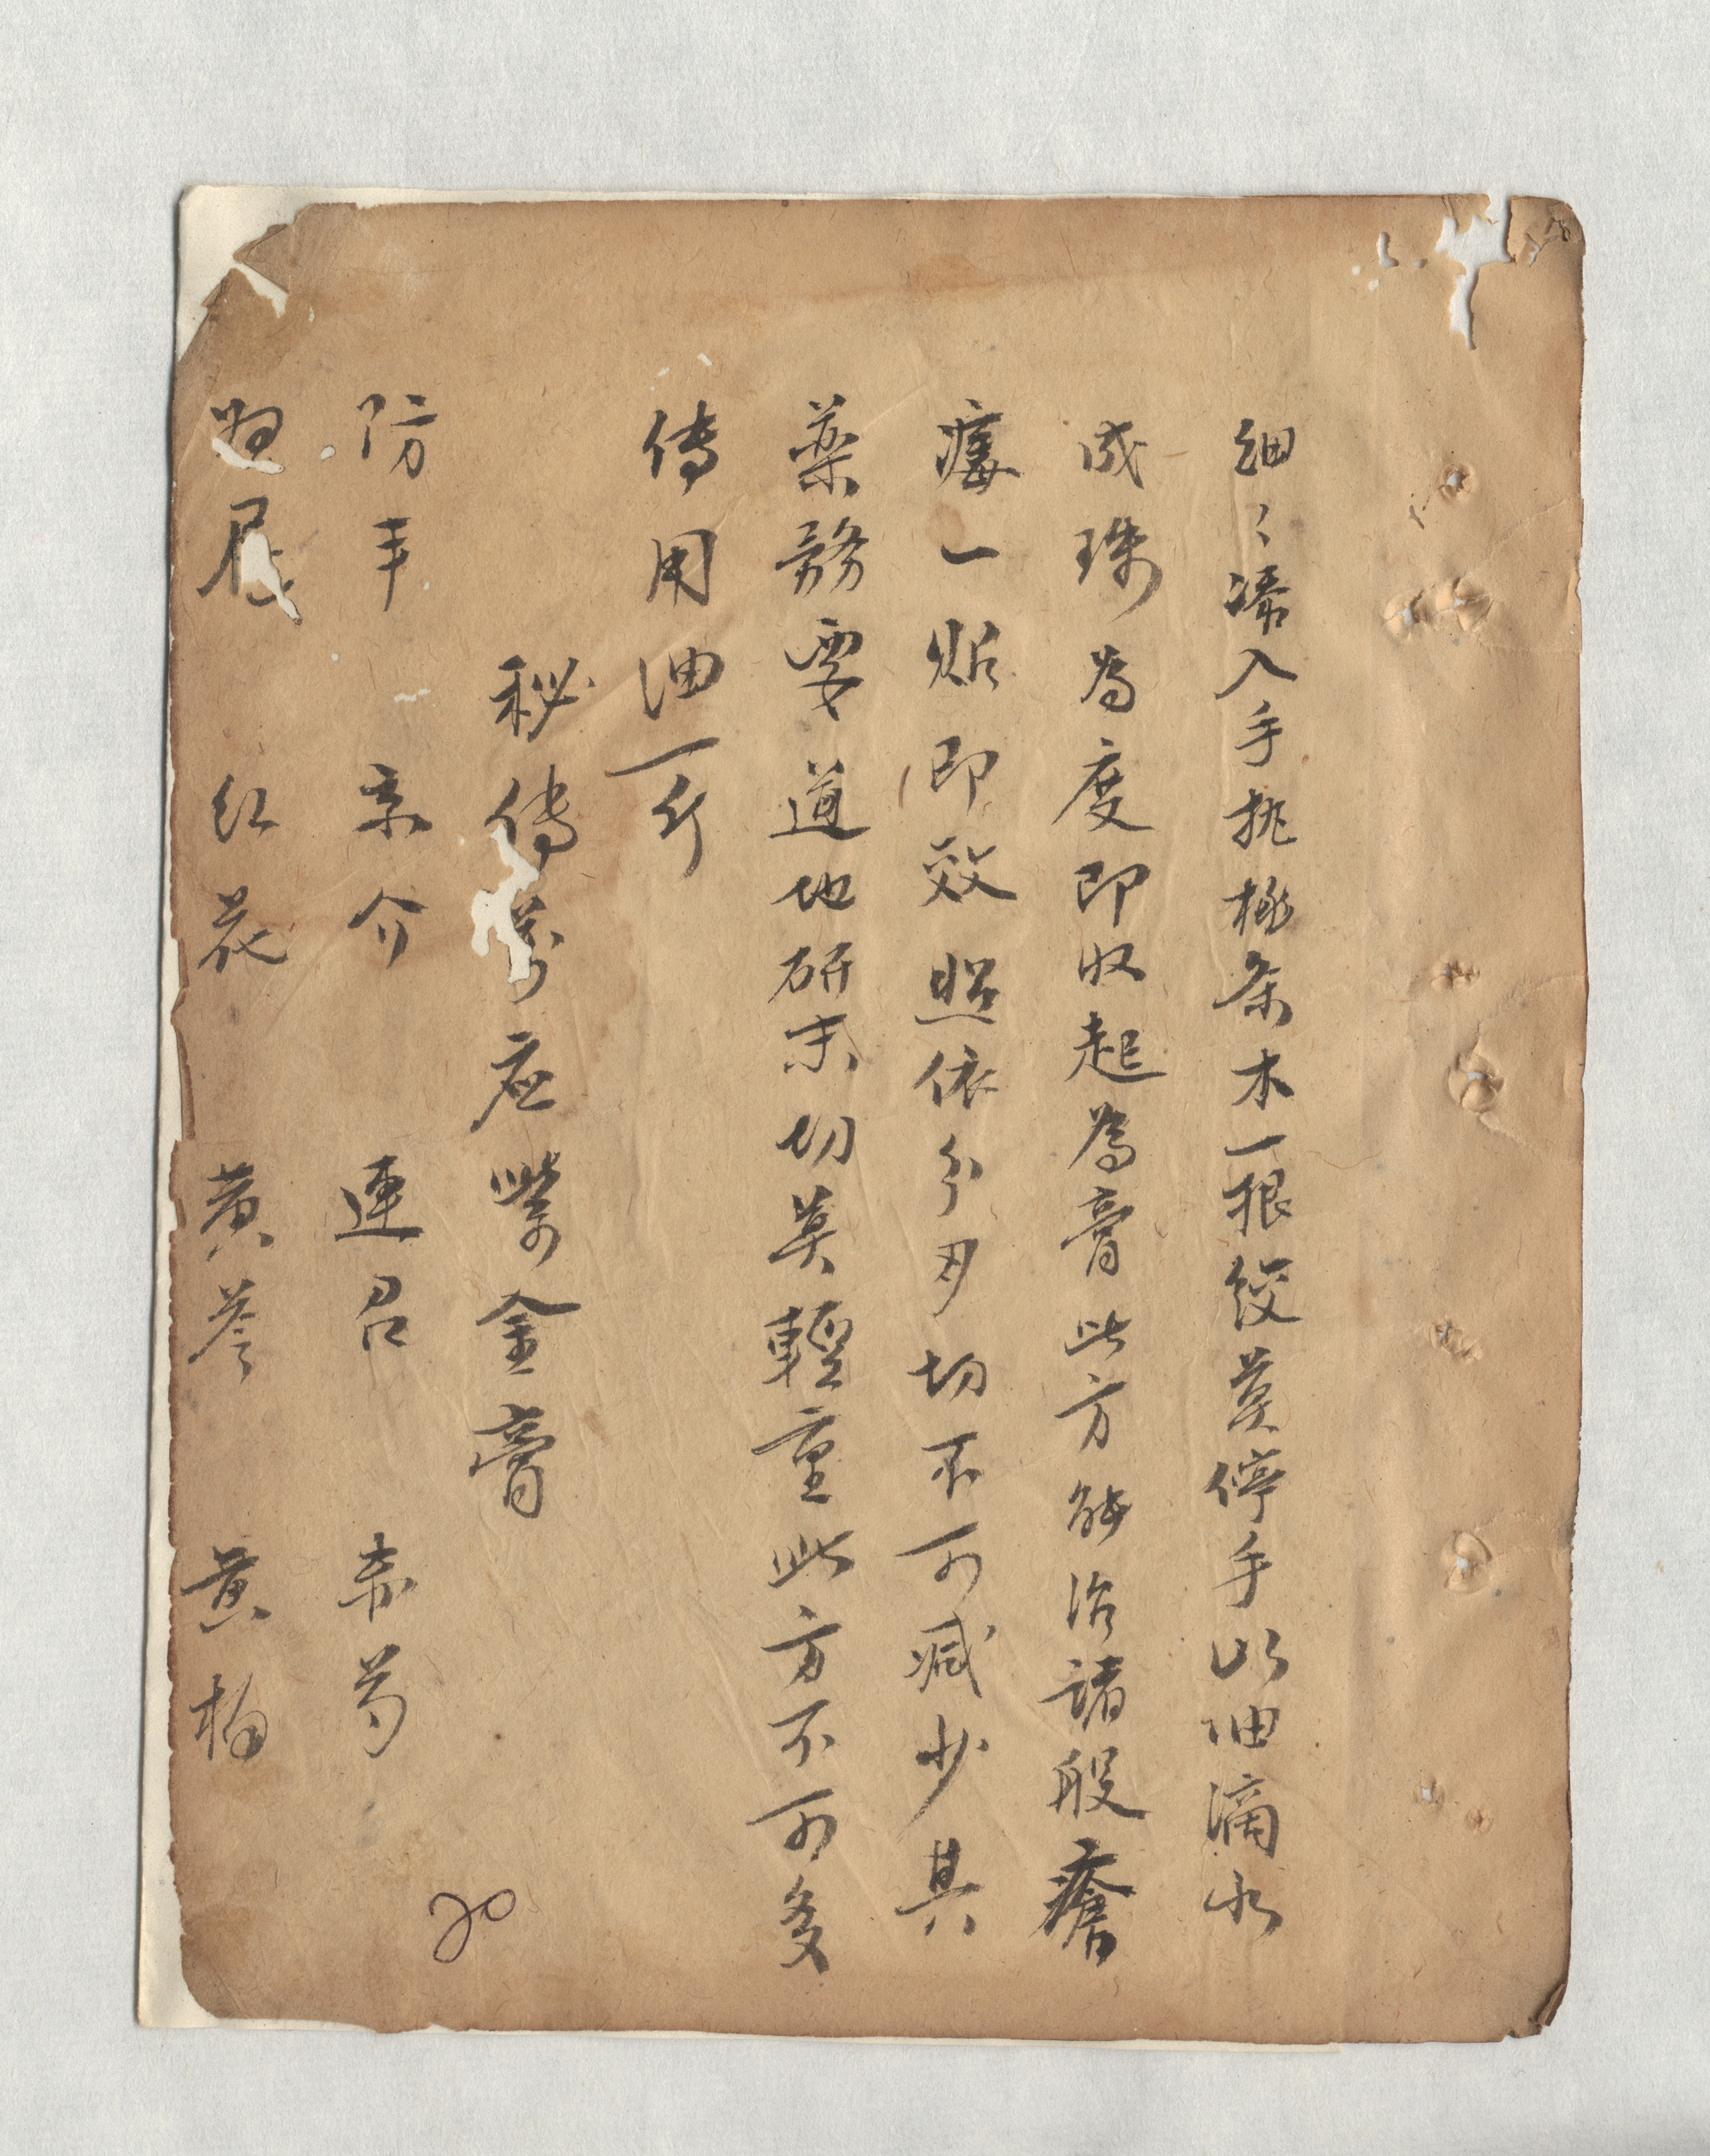 細〻㴆入手挑桃条木一根絞莫停手以油滴水
成珠為度即收起為膏此方能治諸般瘡
瘻一贴即效照依分两切不可减少其
藥務要道地研末切莫輕重此方不可多
傳用油一斤
秘傳萬应紫金膏
防丰 京介 連召 赤芍
归尾 红花 黄芩 黄柏
20